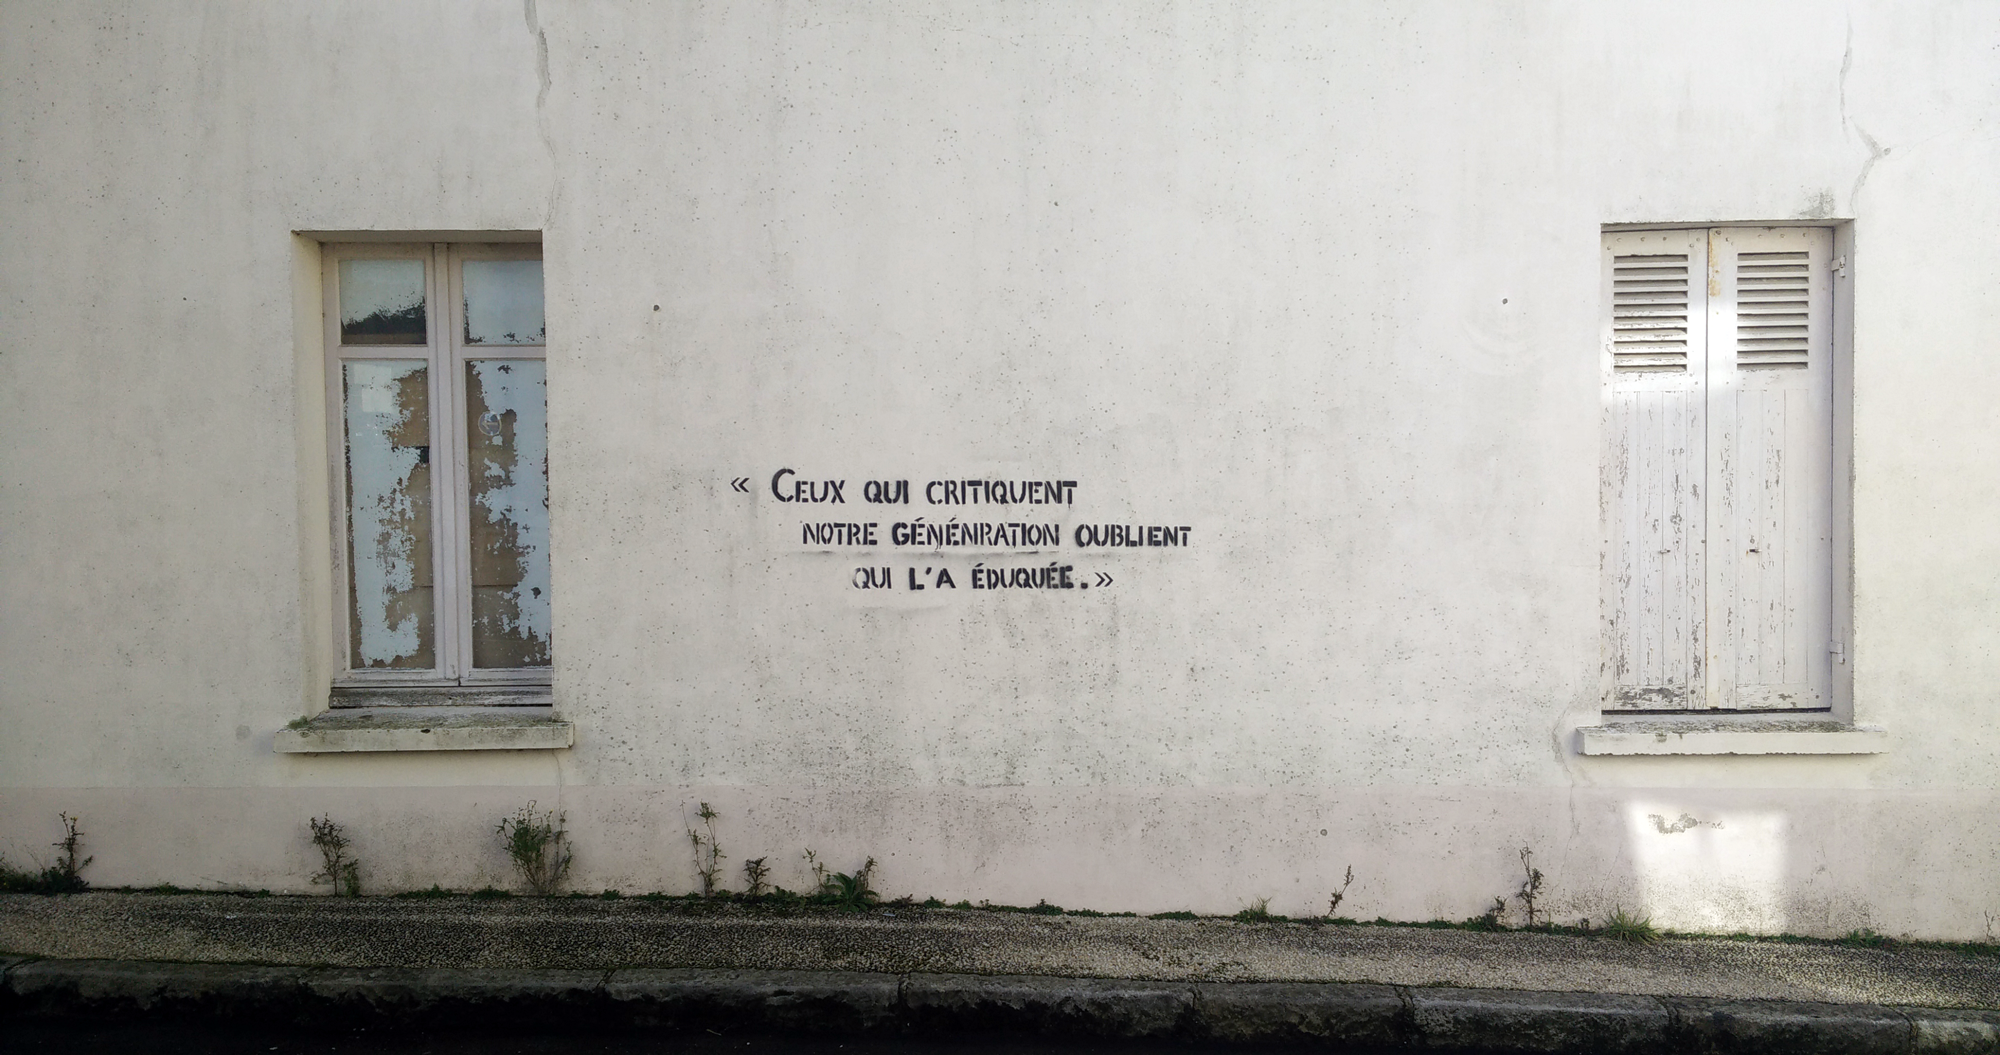 « Ceux qui critiquent
notre génénration oublient
qui l'a éduquée. »